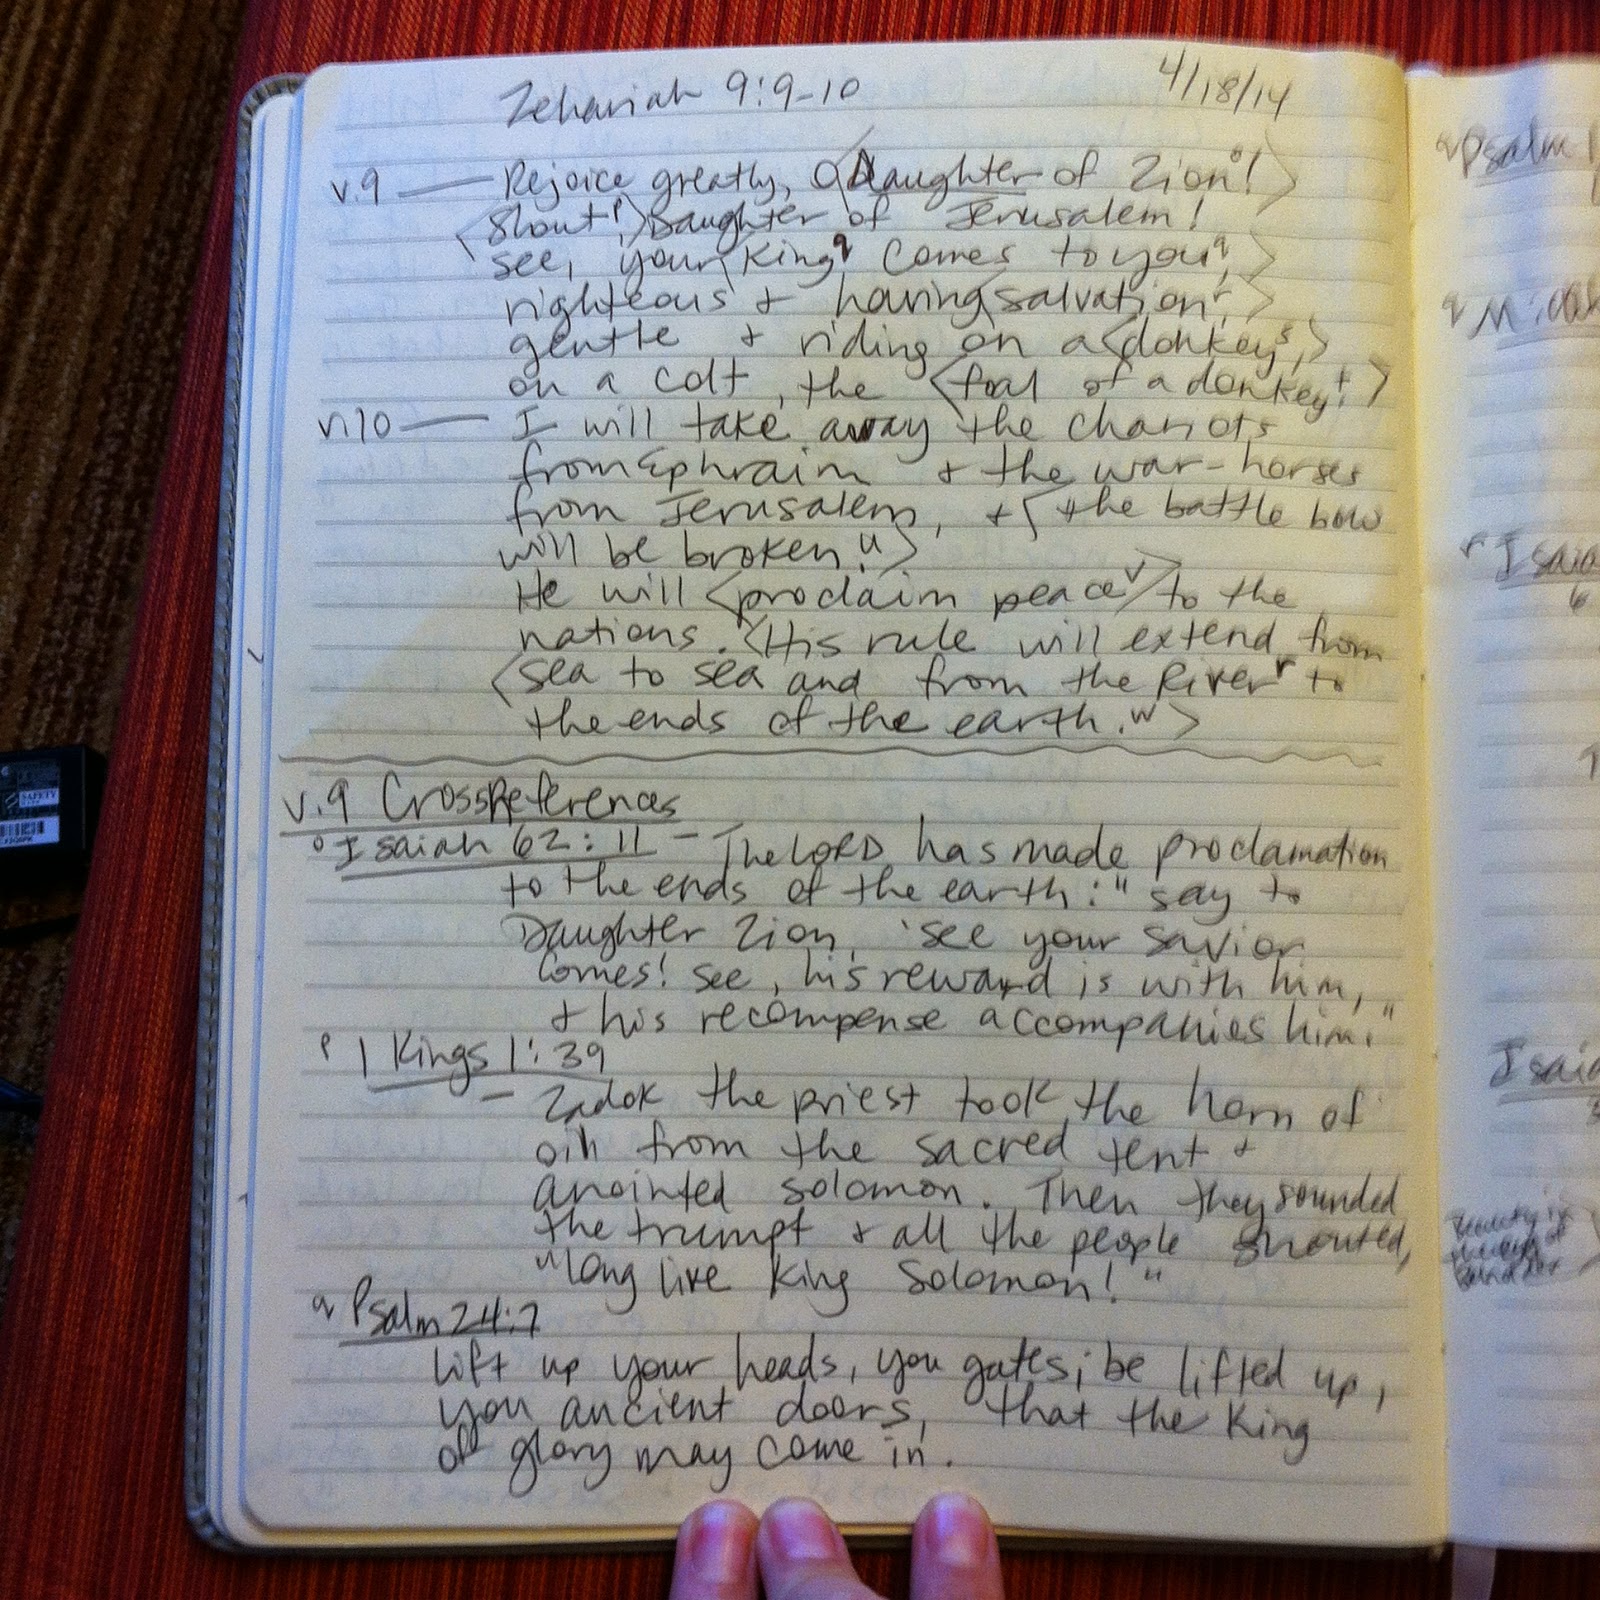 Zehariah 9:9-10 4/18/14
v.9 — Rejoice greatly, O <Daughter of Zion°!>
<Shout,ᵖ> Daughter of Jerusalem!
see, your <King q comes to you q,>
righteous + having <salvation r,>
gentle + riding on a <donkey s,>
on a colt, the <foal of a donkey.t>
v.10 — I will take away the chariots
from Ephraim + the war-horses
from Jerusalem, + <the battle bow
will be broken.u>
He will <proclaim peace v> to the
nations. <His rule will extend from
<sea to sea and from the River r to
the ends of the earth.w>
v.9 CrossReferences
o Isaiah 62:11 - The LORD has made proclamation
to the ends of the earth: "say to
Daughter Zion, 'see your savior
comes! see, his reward is with him,
+ his recompense accompanies him."
p 1 Kings 1:39
- Zadok the priest took the horn of
oil from the sacred tent +
anointed solomon. Then they sounded
the trumpt + all the people shouted,
"long live King Solomon!"
q Psalm 24:7
Lift up your heads, you gates; be lifted up,
you ancient doors, that the King
of glory may come in.
q Psalm
q Micah
r Isaia
6
Isaia
3
SAFETY